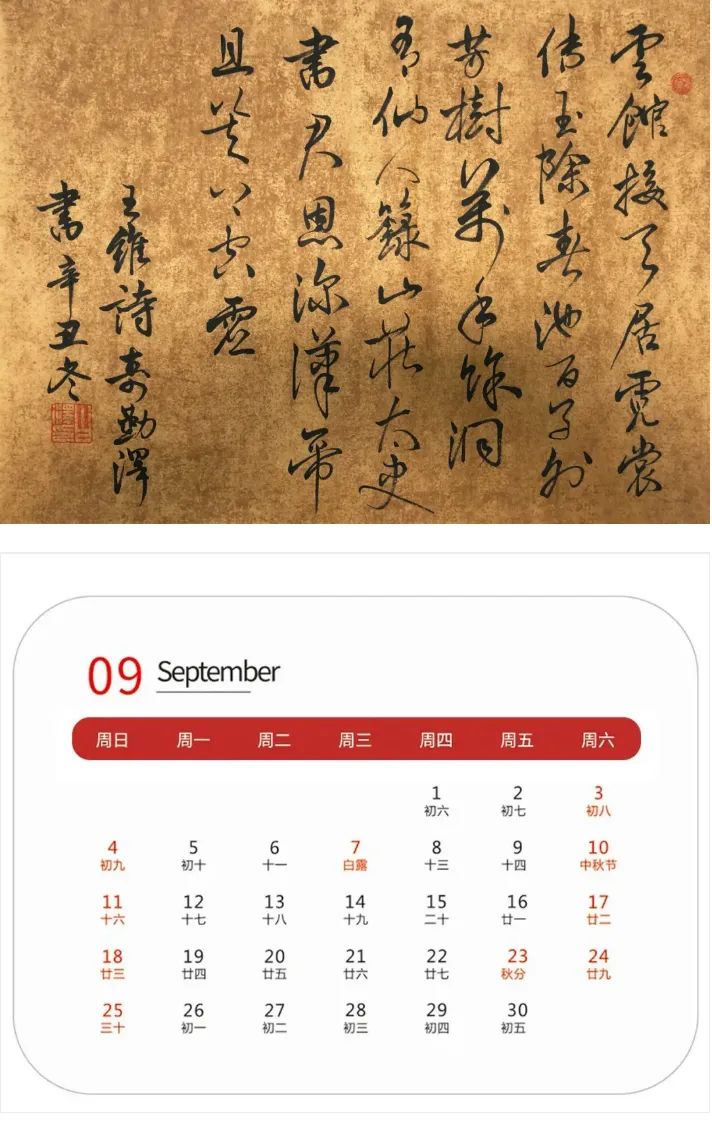 雲館接天居霓裳
侍玉除春池百子外
芳樹萬年餘洞
有仙人籙山藏太史
書君恩深漢帝
且莫上空虛
王維詩勤澤
書辛丑冬
09 September
周日 周一 周二 周三 周四 周五 周六
1 2 3
初六 初七 初八
4 5 6 7 8 9 10
初九 初十 十一 白露 十三 十四 中秋节
11 12 13 14 15 16 17
十六 十七 十八 十九 二十 廿一 廿二
18 19 20 21 22 23 24
廿三 廿四 廿五 廿六 廿七 秋分 廿九
25 26 27 28 29 30
三十 初一 初二 初三 初四 初五